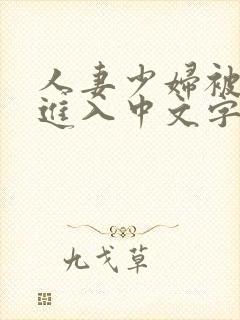 人妻少婦被
進入中文字
九戈草